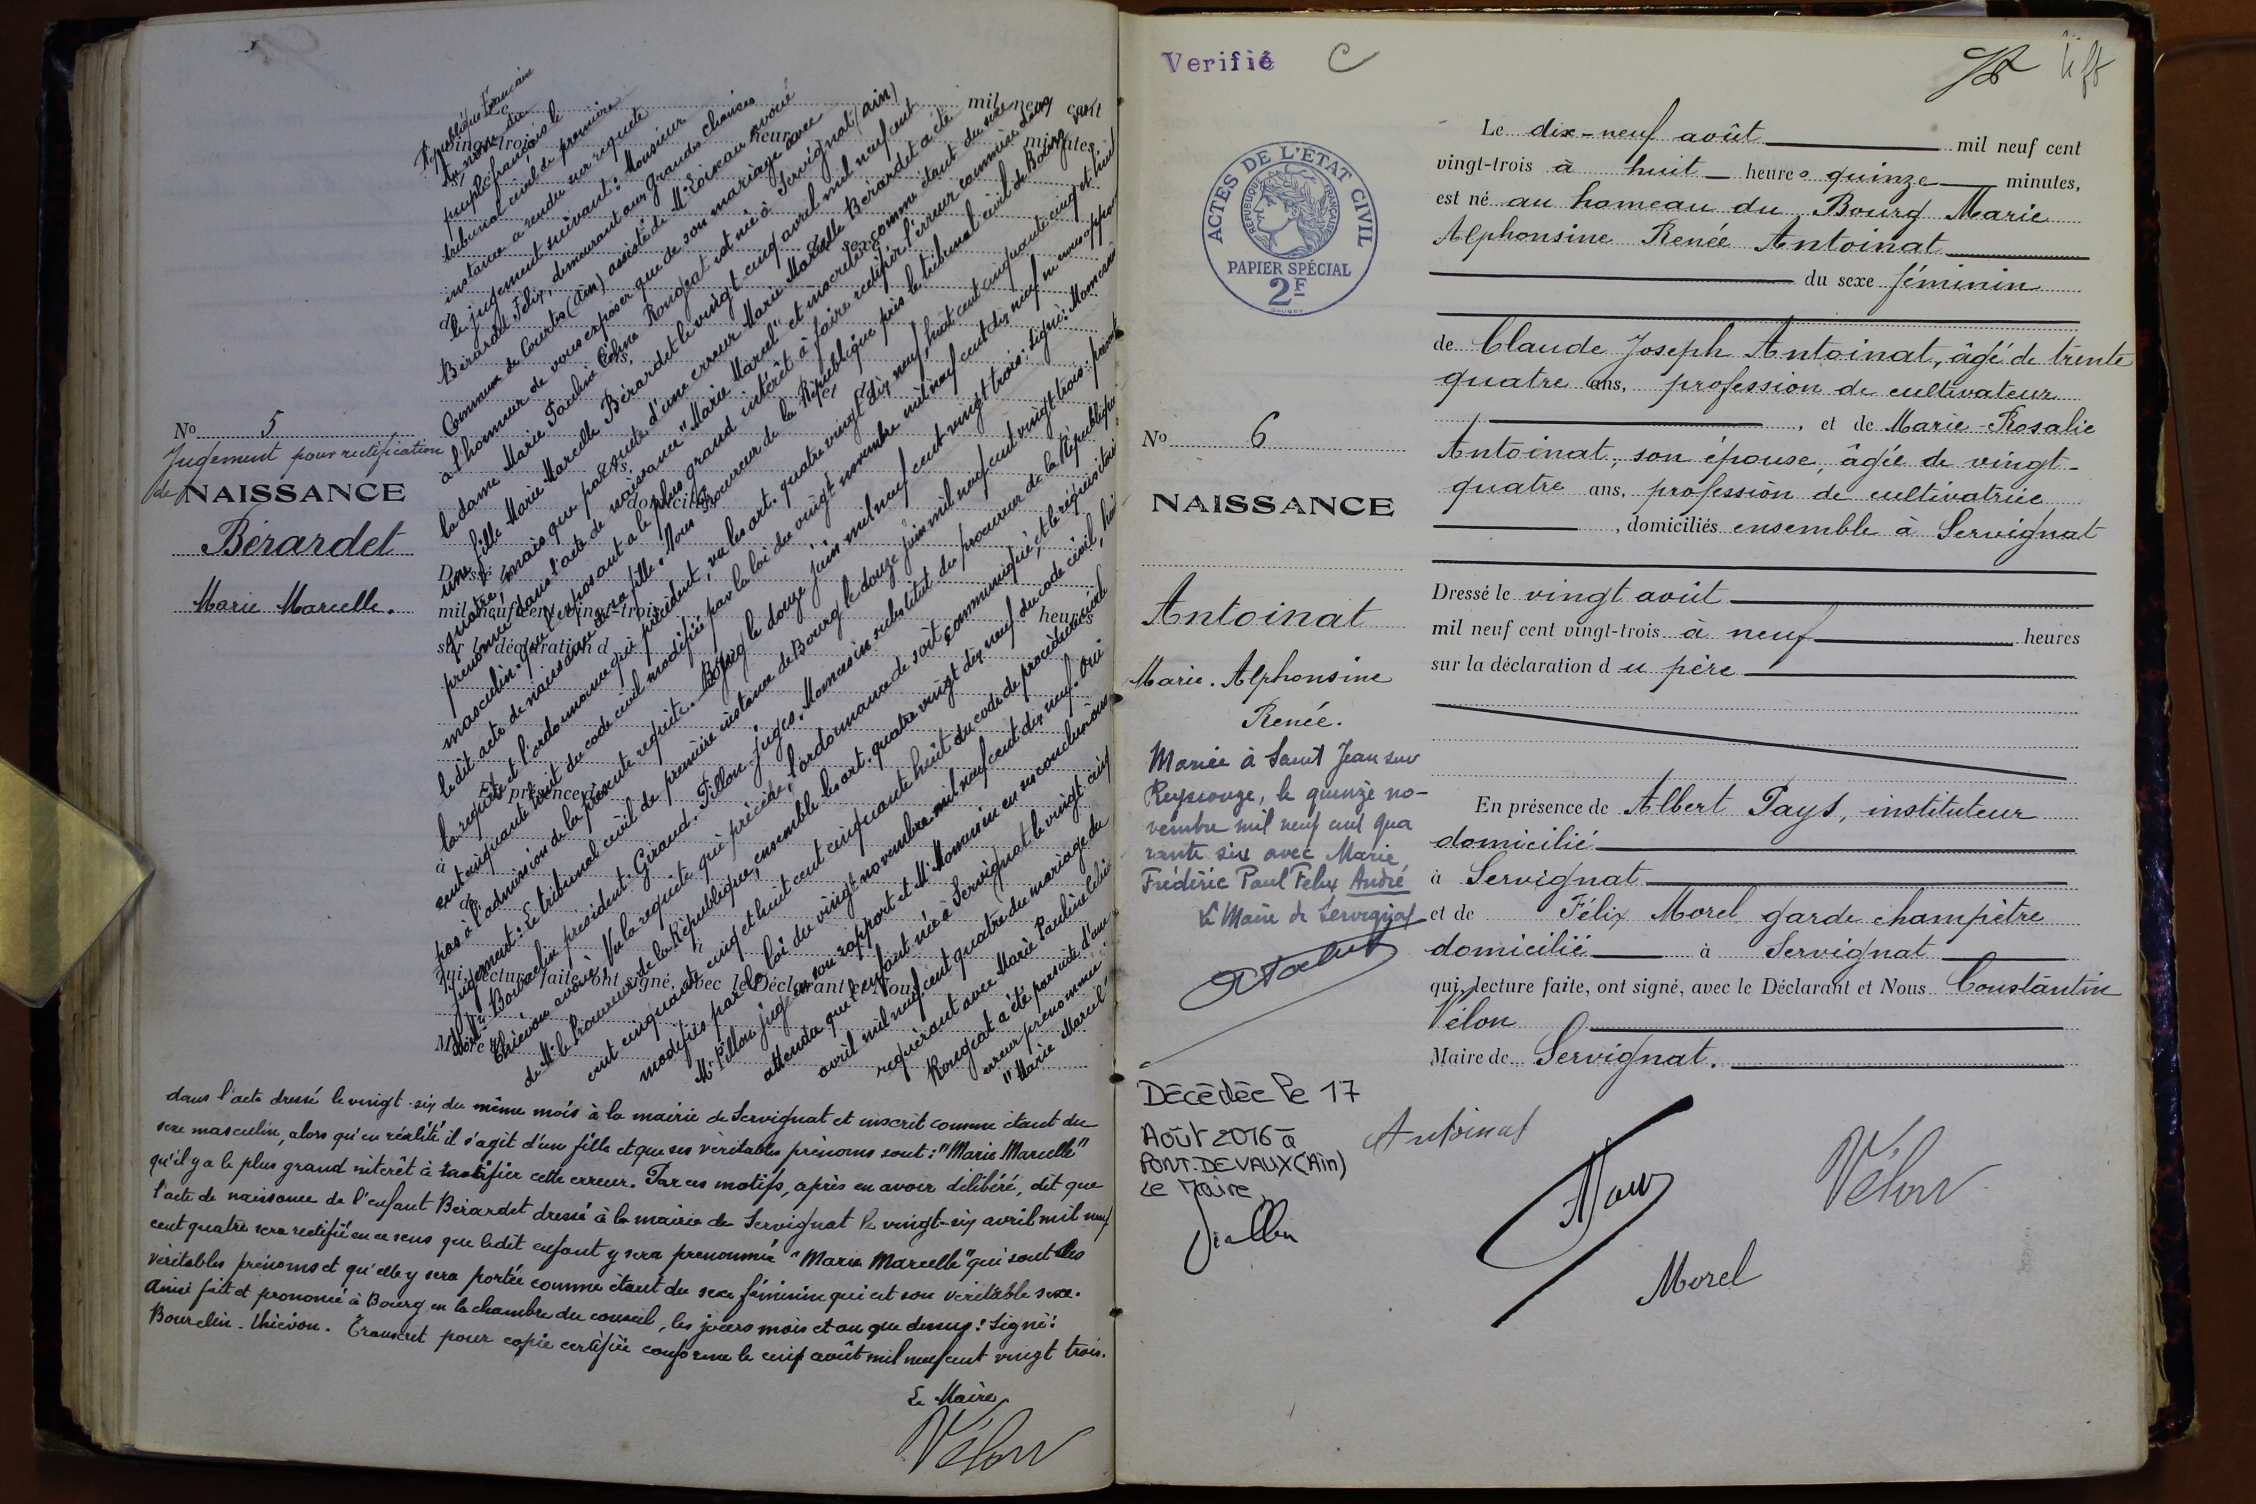 République Française
Au nom du
peuple français le
tribunal civil de première
instance a rendu sur requête
le jugement suivant : Monsieur
Bérardet Félix, demeurant aux grandes chaises
Commune de Courtes (Ain) assisté de Me Loiseau avoué
a l'honneur de vous exposer que de son mariage avec
la dame Marie Pauline Céline Rongeat est née à Servignat (ain)
une fille Marie Marcelle Bérardet le vingt cinq avril mil neuf cent
quatre, mais que par suite d'une erreur Marie Marcelle Bérardet a été
prénommé dans l'acte de naissance "Marie Marcel" et inscrite comme étant du sexe
masculin. que l'exposant a le plus grand intérêt à faire rectifier l'erreur commise dans
le dit acte de naissance de sa fille. Nous Procureur de la République près le tribunal civil de Bourg vu
la requête et l'ordonnance qui précèdent, vu les art. quatre vingt dix neuf, huit cent cinquante cinq et huit
cent cinquante huit du code civil modifiés par la loi du vingt novembre mil neuf cent dix neuf ne nous opposons
pas à l'admission de la présente requête. Bourg le douze juin mil neuf cent vingt trois : signé : Momessin
Jugement : Le tribunal civil de première instance de Bourg le douze juin mil neuf cent vingt trois : présents
Mrs Bourdin président. Giraud. Fillon. juges. Momessin substitut du procureur de la République
Thiévon avoué, Vu la requête qui précède, l'ordonnance de soit communiqué, et le réquisitoire
de Mr le Procureur de la République, ensemble les art. quatre vingt dix neuf du code civil, huit
cent cinquante cinq et huit cent cinquante huit du code de procédure civile
modifiés par la loi du vingt novembre mil neuf cent dix neuf. Oui
Mr Fillon juge en son rapport et Mr Momessin en ses conclusions
attendu que l'enfant née à Servignat le vingt cinq
avril mil neuf cent quatre du mariage du
requérant avec Marie Pauline Céline
Rongeat a été par suite d'une
erreur prénommé
"Marie Marcel"
mil neuf cent
vingt-trois
heures
minutes
du sexe
ans,
ans,
domiciliés
Dressé
mil neuf cent vingt-trois
heures
sur la déclaration d
En présence
à
qui, lecture faite, ont signé, avec le Déclarant et Nous
Maire
No 5
Jugement pour rectification
de NAISSANCE
Bérardet
Marie Marcelle.
dans l'acte dressé le vingt-six du même mois à la mairie de Servignat et inscrit comme étant du
sexe masculin, alors qu'en réalité il s'agit d'une fille et que ses véritables prénoms sont : "Marie Marcelle"
qu'il y a le plus grand intérêt à rectifier cette erreur. Par ces motifs, après en avoir délibéré, dit que
l'acte de naissance de l'enfant Bérardet dressé à la mairie de Servignat le vingt-six avril mil neuf
cent quatre sera rectifié en ce sens que ledit enfant y sera prénommé "Marie Marcelle" qui sont les
véritables prénoms et qu'elle y sera portée comme étant du sexe féminin qui est son véritable sexe.
Ainsi fait et prononcé à Bourg en la chambre du conseil, les jours mois et an que dessus : Signé :
Bourdin. Thiévon. Transcrit pour copie certifiée conforme le cinq août mil neuf cent vingt trois.
Le Maire
Vélon
Verifié C
ACTES DE L'ÉTAT CIVIL
RÉPUBLIQUE FRANÇAISE
PAPIER SPÉCIAL
2F
No 6
NAISSANCE
Antoinat
Marie. Alphonsine
Renée.
Mariée à Saint Jean sur
Reyssouze, le quinze no-
vembre mil neuf cent qua
rante six avec Marie
Frédéric Paul Felix André
Le Maire de Servignat
Décédée le 17
Août 2016 à
PONT.DE VAUX (Ain)
Le Maire,
Le dix-neuf août mil neuf cent
vingt-trois à huit heures quinze minutes,
est né au hameau du Bourg Marie
Alphonsine Renée Antoinat
du sexe féminin
de Claude Joseph Antoinat, âgé de trente
quatre ans, profession de cultivateur
, et de Marie-Rosalie
Antoinat, son épouse, âgée de vingt-
quatre ans, profession de cultivatrice
, domiciliés ensemble à Servignat
Dressé le vingt août
mil neuf cent vingt-trois à neuf heures
sur la déclaration du père
En présence de Albert Pays, instituteur
domicilié
à Servignat
et de Félix Morel garde champêtre
domicilié à Servignat
qui, lecture faite, ont signé, avec le Déclarant et Nous Constantin
Vélon
Maire de Servignat.
Antoinat
Vélon
Morel